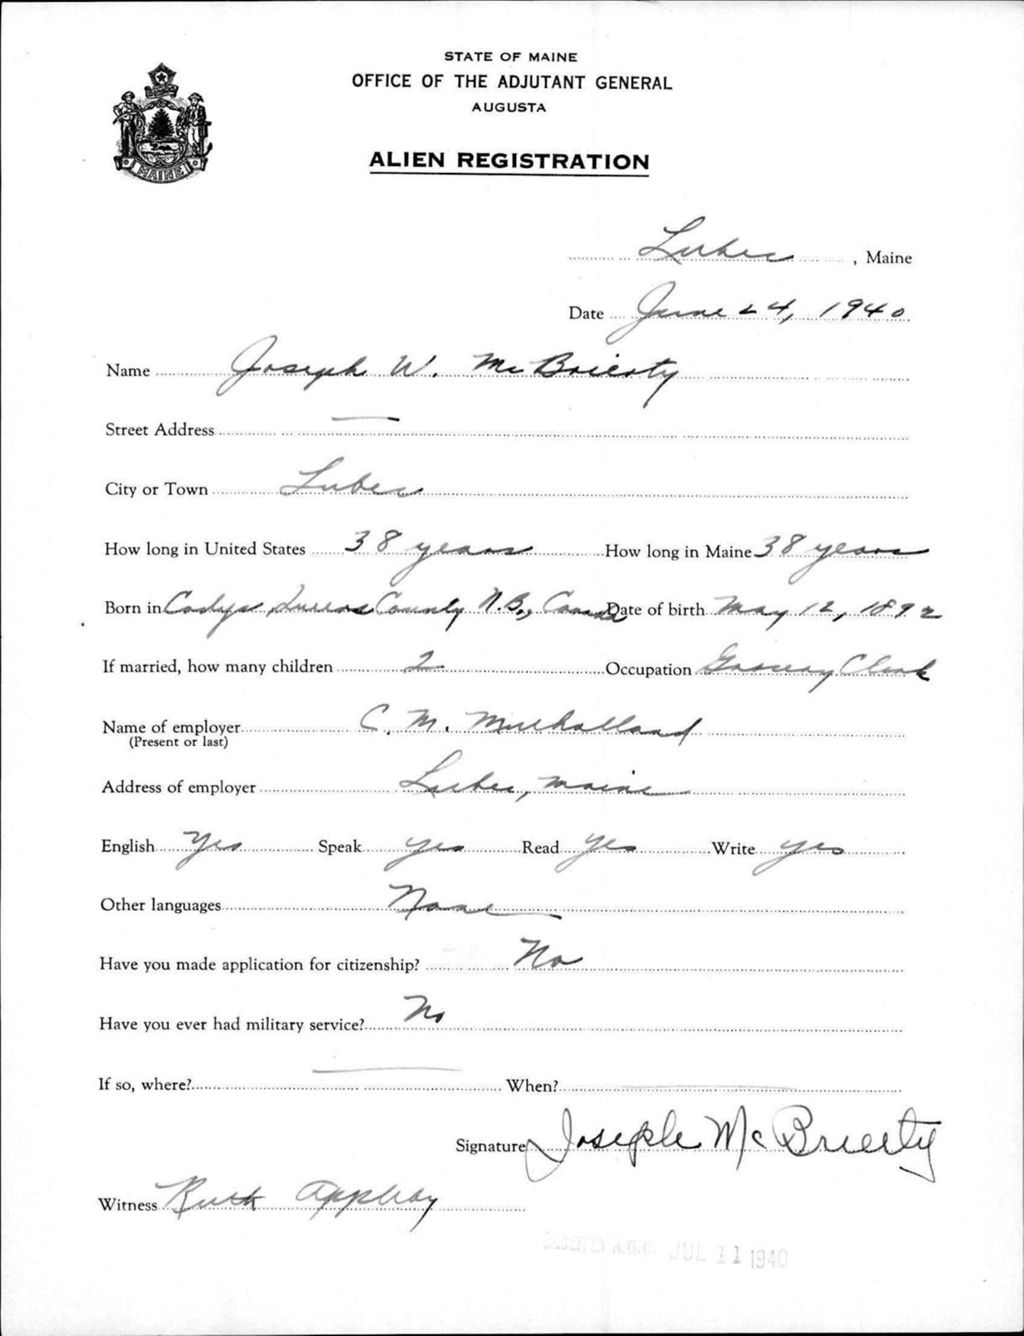 STATE OF MAINE
OFFICE OF THE ADJUTANT GENERAL
AUGUSTA
ALIEN REGISTRATION
MAINE
Lubec, Maine
Date June 24, 1940
Name Joseph W. McBrierty
Street Address —
City or Town Lubec
How long in United States 38 years How long in Maine 38 years
Born in Codys, Queens County N.B., Canada Date of birth May 12, 1892
If married, how many children 2 Occupation Grocery Clerk
Name of employer C. M. Mulholland
(Present or last)
Address of employer Lubec, Maine
English Yes Speak yes Read yes Write yes
Other languages None
Have you made application for citizenship? No
Have you ever had military service? No
If so, where? — When? —
Signature Joseph McBrierty
Witness Ruth Appleby
A.G.O. JUL 11 1940